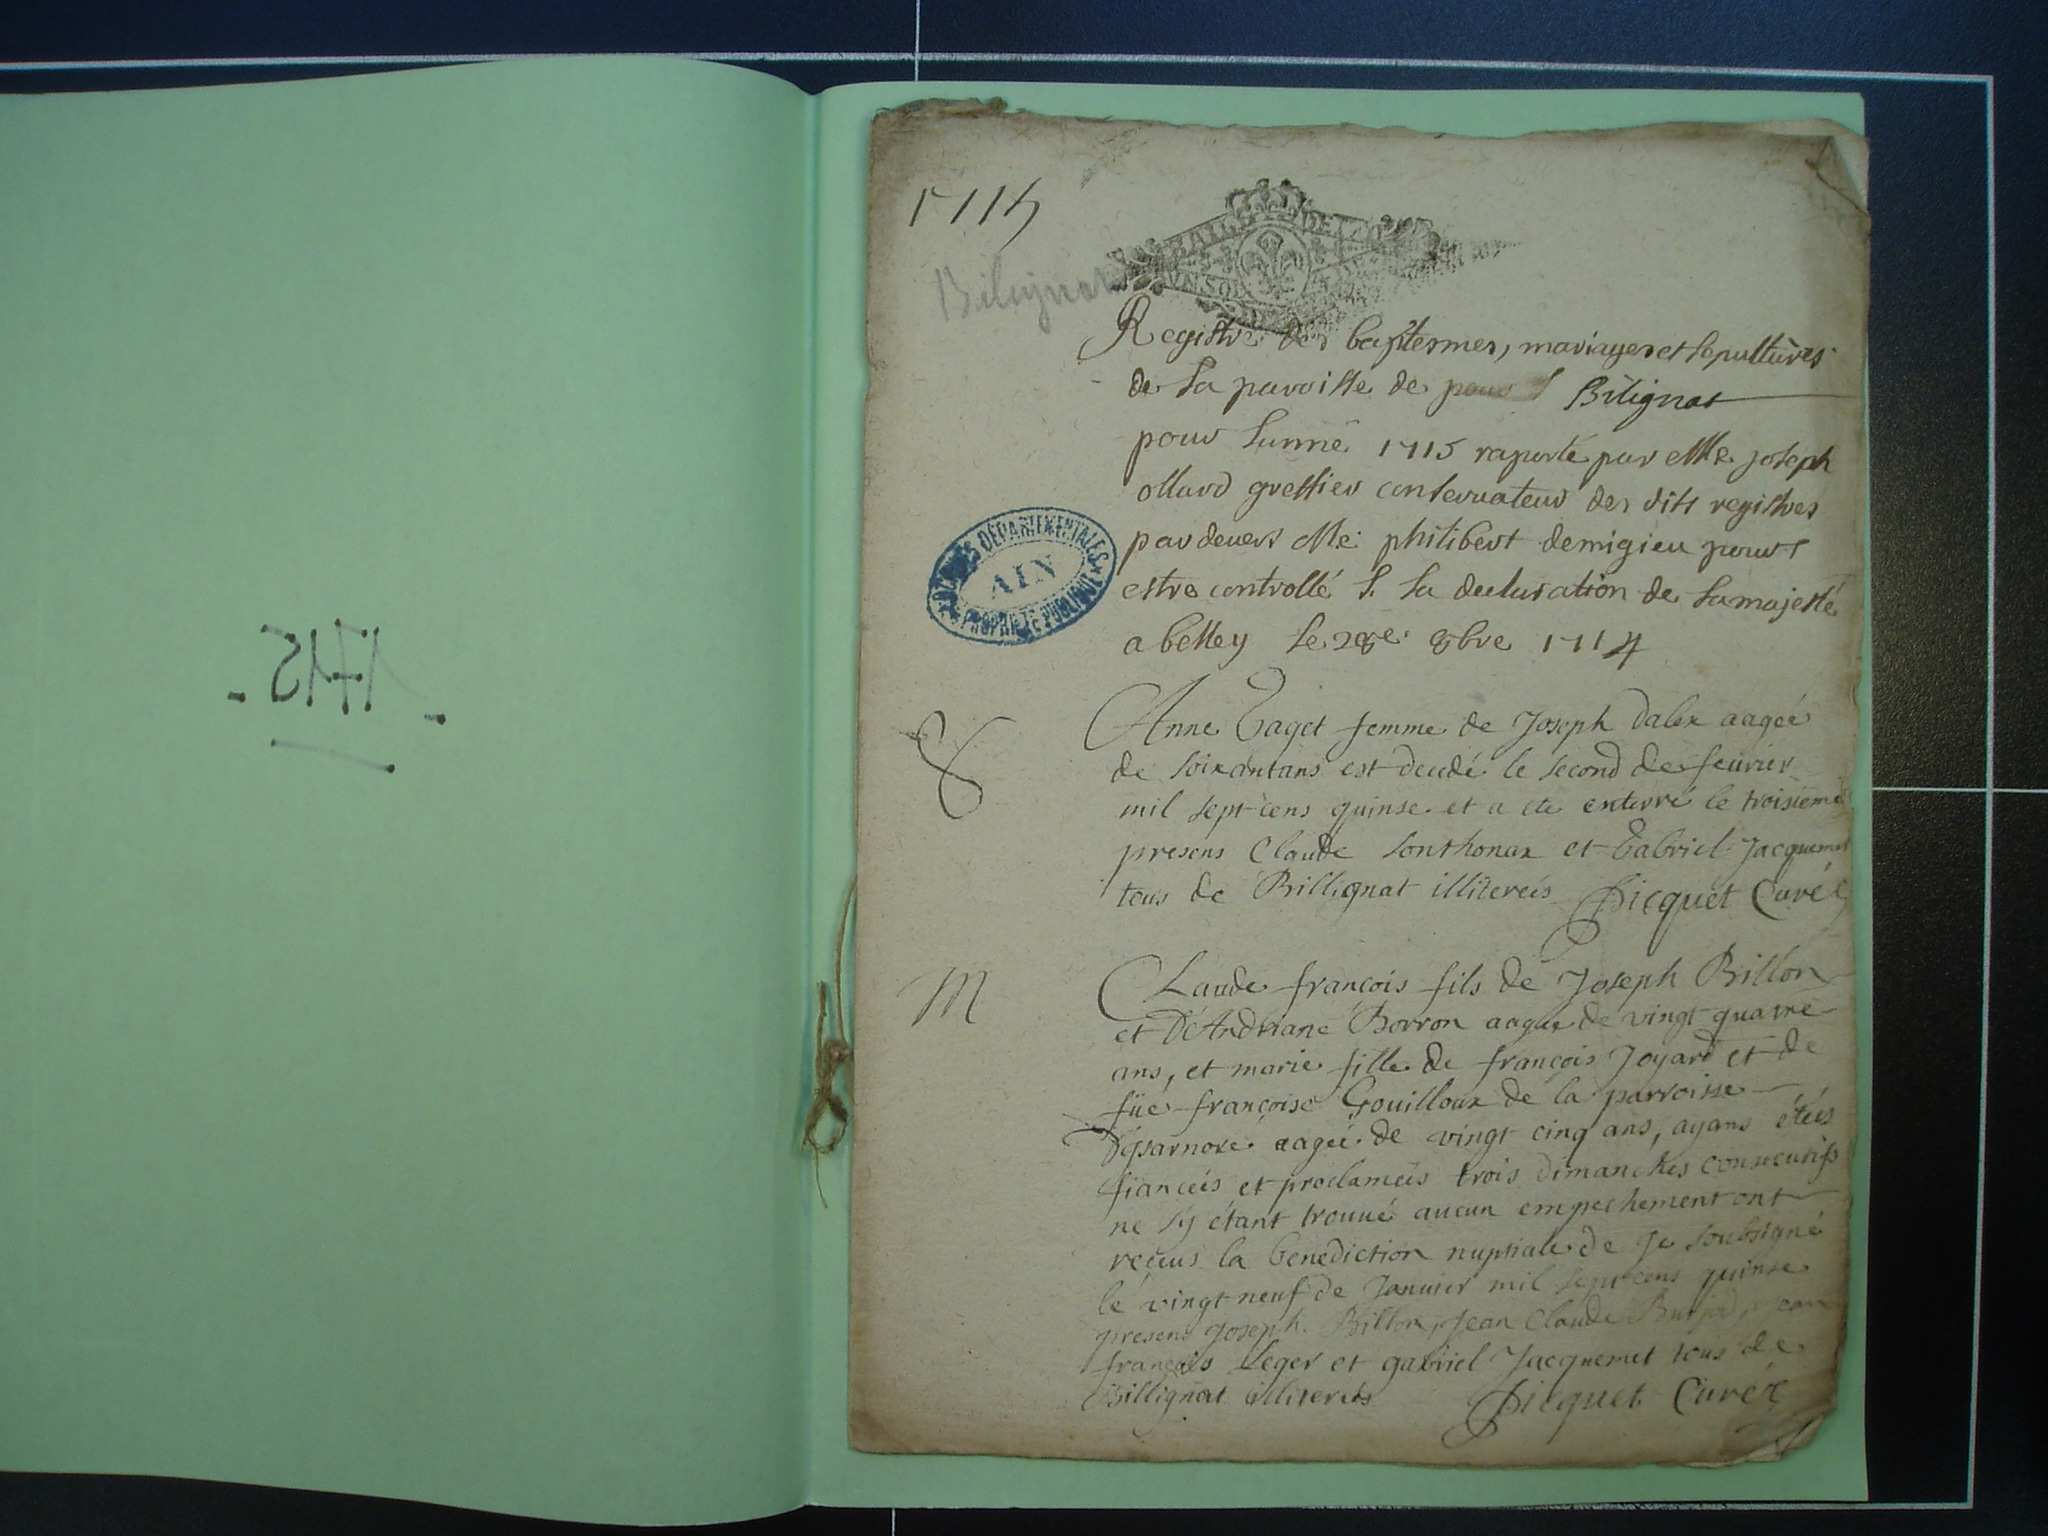 1715
1715
Bilignat
GRALITE DE
UN SOL
Registre des baptesmes, mariages et sepultures
de la paroisse de pour Bilignat
pour lanné 1715 raporté par Me Joseph
ollard greffier conservateur des dits registres
pardevers Me philibert demigieu pour
estre controllé S. la declaration de sa majesté
a belley le 28e 8bre 1714
ARCHIVES DÉPARTEMENTALES
AIN
PROPRIÉTÉ PUBLIQUE
S
Anne Taget femme de Joseph dalex aagée
de soixantans est decedé le second de feurier
mil sept cens quinse et a ete enterré le troisieme
presens Claude Sonthonax et Gabriel Jacquemet
tous de Billignat illitereés Picquet Curé
M
Claude françois fils de Joseph Billon
et D'Andriane Borron aagee de vingt quatre
ans, et marie fille de françois Joyard et de
füe françoise Gouilloux de la parroisse
D'ysarnore aageé de vingt cinq ans, ayans étées
fianceés et proclameés trois dimanches consecutifs
ne s'y étant trouué aucun empechement ont
reçeus la benediction nuptiale de Je soubsigné
lé vingt neuf de Januier mil sept cens quinse
presens Joseph Billon, Jean Claude
françois Leger et gabriel Jacquemet tous de
Billignat illitereés Picquet Curé